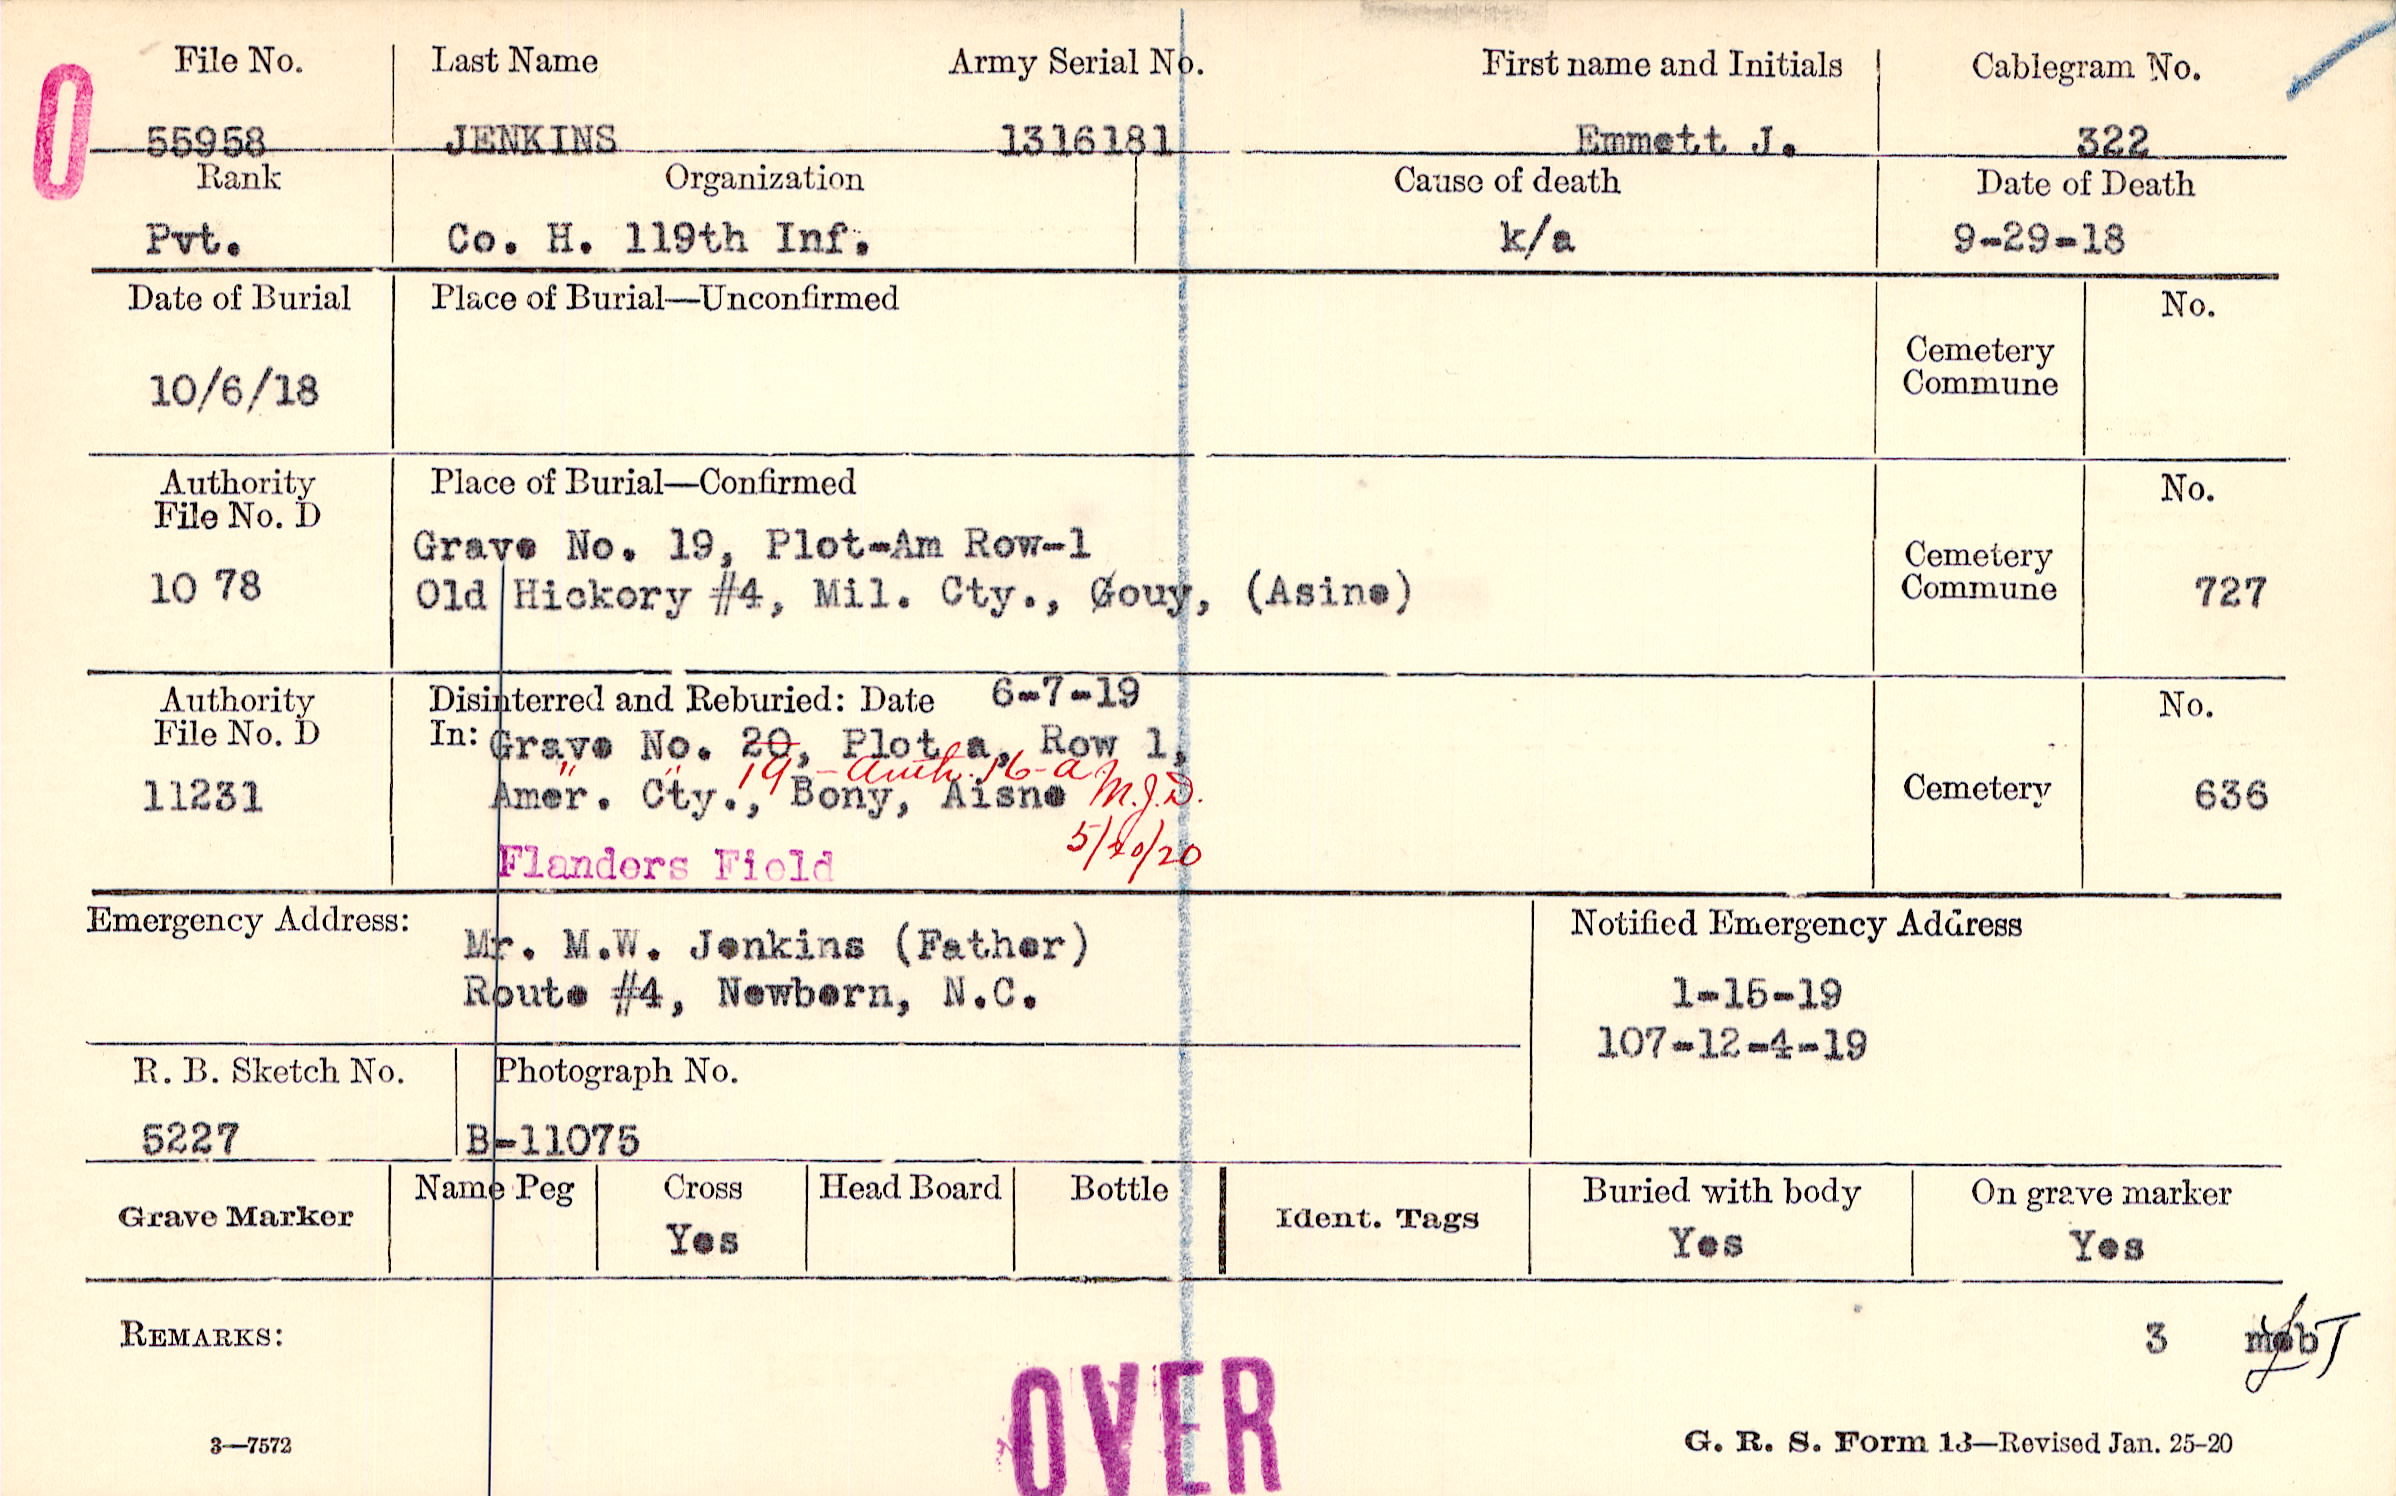 File No. Last Name Army Serial No. First name and Initials Cablegram No.
55958 JENKINS 1316181 Emmett J. 322
Rank Organization Cause of death Date of Death
Pvt. Co. H. 119th Inf. k/a 9-29-18
Date of Burial Place of Burial—Unconfirmed No.
Cemetery
Commune
10/6/18
Authority Place of Burial—Confirmed No.
File No. D
Grave No. 19, Plot-Am Row-1
10 78 Old Hickory #4, Mil. Cty., Gouy, (Asine) Cemetery
Commune 727
Authority Disinterred and Reburied: Date 6-7-19 No.
File No. D In: Grave No. 20, Plot a, Row 1,
" " 19 - auth. 16-a M.J.D.
11231 Amer. Cty., Bony, Aisne Cemetery 636
5/20/20
Flanders Field
Emergency Address: Notified Emergency Address
Mr. M.W. Jenkins (Father)
Route #4, Newbern, N.C. 1-15-19
107-12-4-19
R. B. Sketch No. Photograph No.
5227 B-11075
Grave Marker Name Peg Cross Head Board Bottle Ident. Tags Buried with body On grave marker
Yes Yes Yes
REMARKS: 3 mebT
OVER
3—7572 G. R. S. Form 13—Revised Jan. 25-20